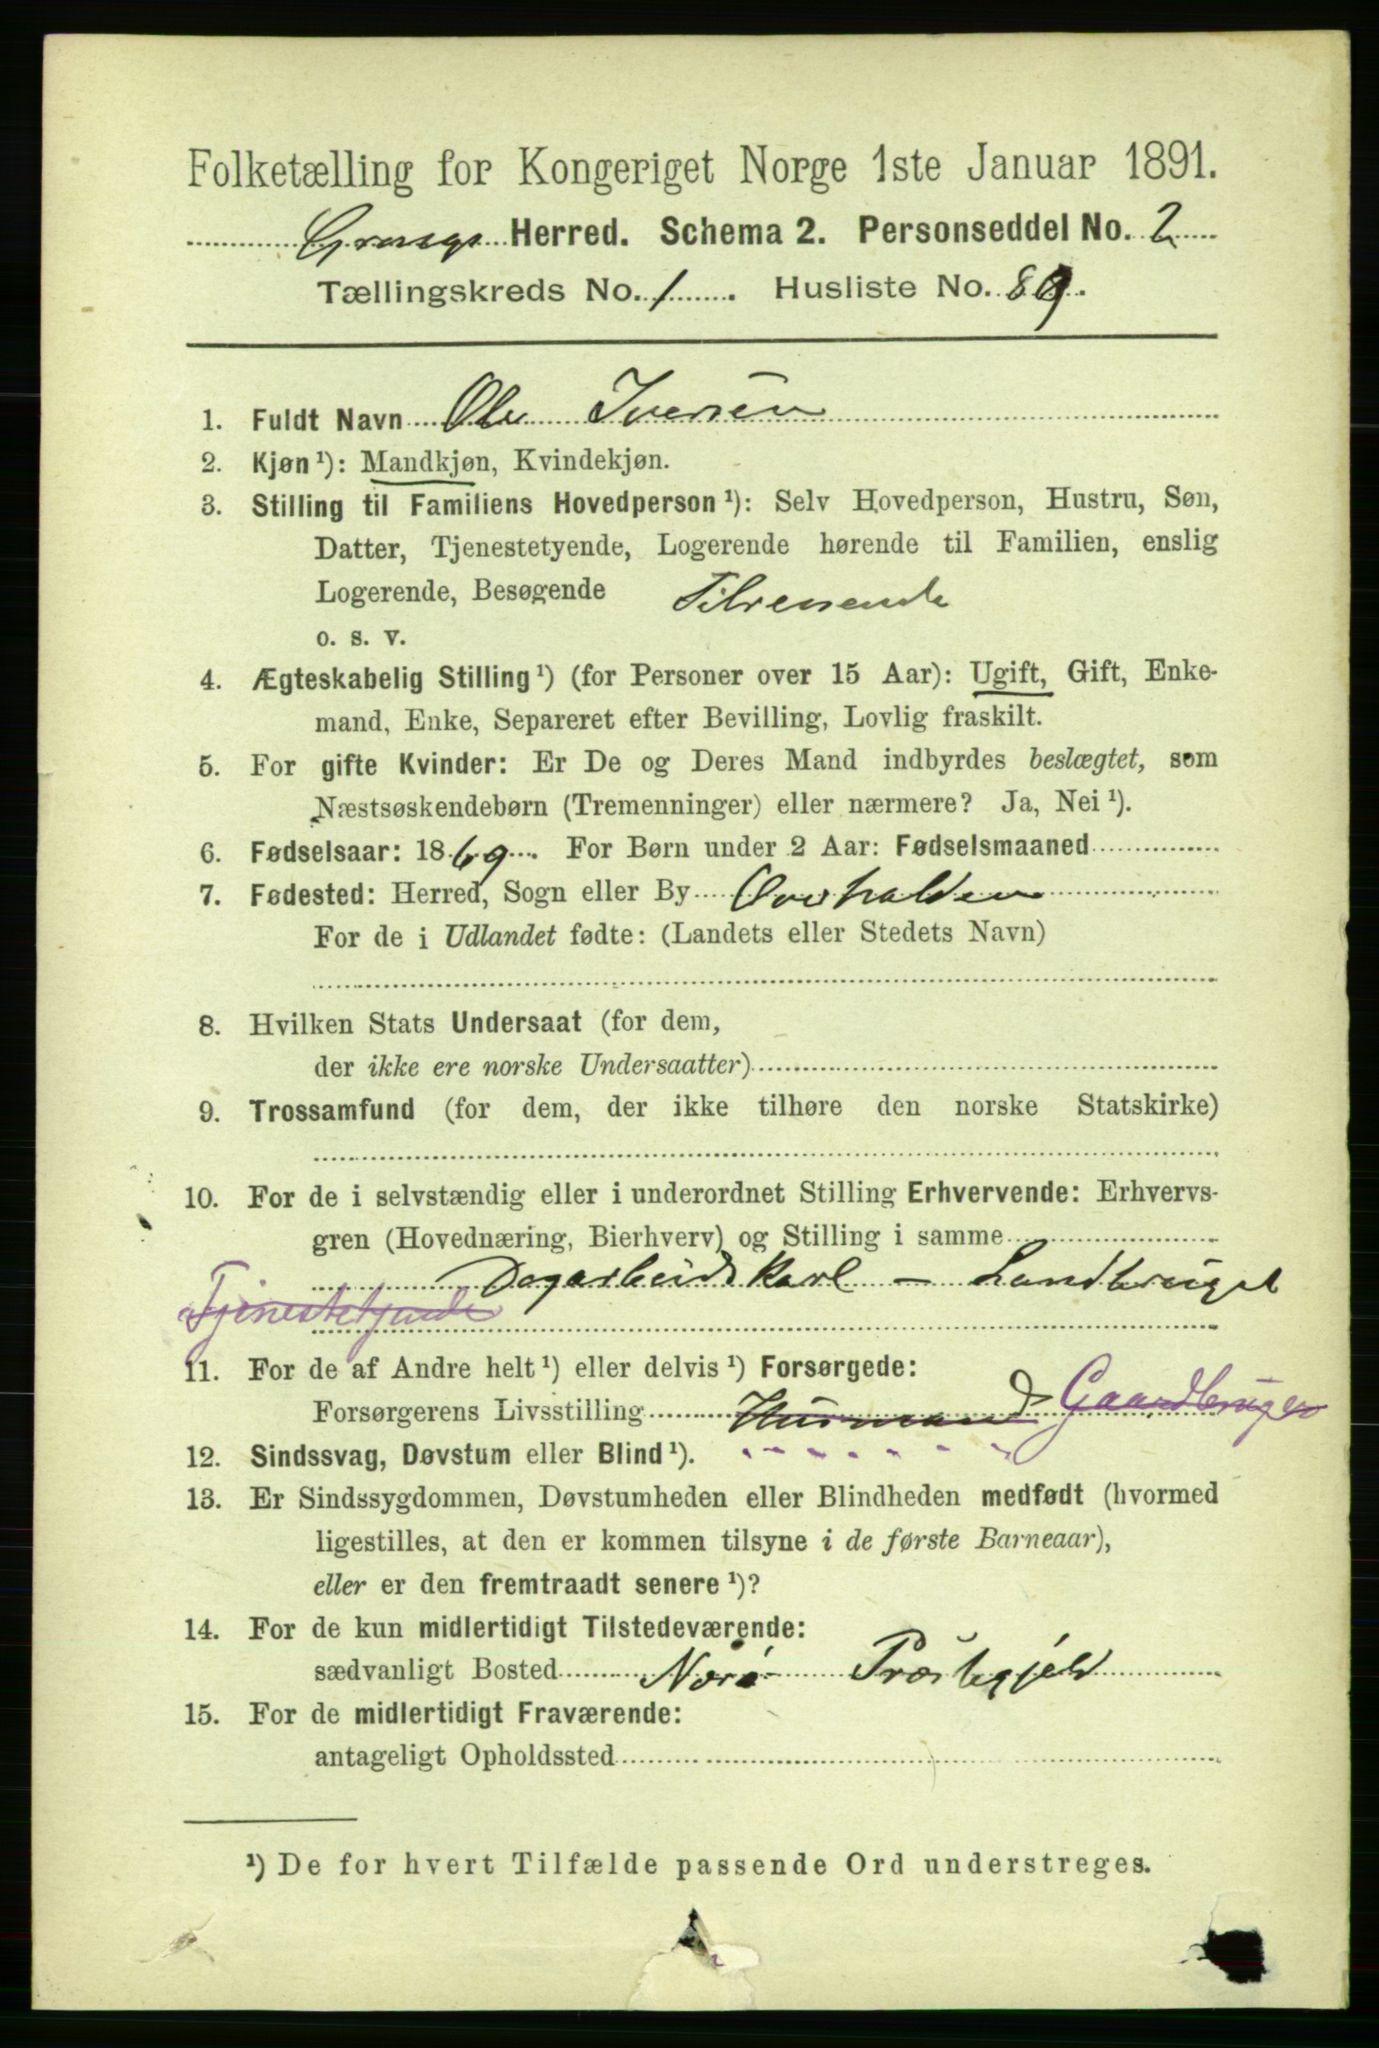 Folketælling for Kongeriget Norge 1ste Januar 1891.
Herred. Schema 2. Personseddel No. 2
Tællingskreds No. 1. Husliste No. 89.
1. Fuldt Navn Ole Iversen
2. Kjøn ¹): Mandkjøn, Kvindekjøn.
3. Stilling til Familiens Hovedperson ¹): Selv Hovedperson, Hustru, Søn,
Datter, Tjenestetyende, Logerende hørende til Familien, enslig
Logerende, Besøgende Tilreisende
o. s. v.
4. Ægteskabelig Stilling ¹) (for Personer over 15 Aar): Ugift, Gift, Enke-
mand, Enke, Separeret efter Bevilling, Lovlig fraskilt.
5. For gifte Kvinder: Er De og Deres Mand indbyrdes beslægtet, som
Næstsøskendebørn (Tremenninger) eller nærmere? Ja, Nei ¹).
6. Fødselsaar: 1869. For Børn under 2 Aar: Fødselsmaaned
7. Fødested: Herred, Sogn eller By Overhalden
For de i Udlandet fødte: (Landets eller Stedets Navn)
8. Hvilken Stats Undersaat (for dem,
der ikke ere norske Undersaatter)
9. Trossamfund (for dem, der ikke tilhøre den norske Statskirke)
10. For de i selvstændig eller i underordnet Stilling Erhvervende: Erhvervs-
gren (Hovednæring, Bierhverv) og Stilling i samme
Dagarbeidskarl – Landbruget
Tjenestetyende
11. For de af Andre helt ¹) eller delvis ¹) Forsørgede:
Forsørgerens Livsstilling Husmand Gaardbruger
12. Sindssvag, Døvstum eller Blind ¹).
13. Er Sindssygdommen, Døvstumheden eller Blindheden medfødt (hvormed
ligestilles, at den er kommen tilsyne i de første Barneaar),
eller er den fremtraadt senere ¹)?
14. For de kun midlertidigt Tilstedeværende:
sædvanligt Bosted Nærø Præstegjeld
15. For de midlertidigt Fraværende:
antageligt Opholdssted
¹) De for hvert Tilfælde passende Ord understreges.